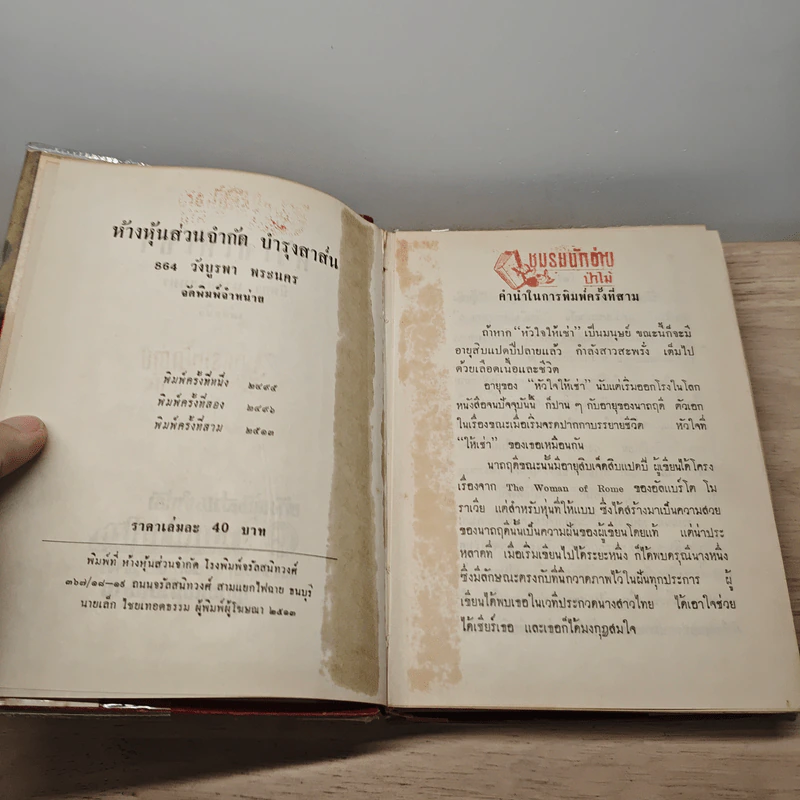 ห้างหุ้นส่วนจำกัด บำรุงสาส์น
864 วังบูรพา พระนคร
จัดพิมพ์จำหน่าย
พิมพ์ครั้งที่หนึ่ง ๒๔๙๕
พิมพ์ครั้งที่สอง ๒๔๙๖
พิมพ์ครั้งที่สาม ๒๕๑๓
ราคาเล่มละ 40 บาท
พิมพ์ที่ ห้างหุ้นส่วนจำกัด โรงพิมพ์จรัลสนิทวงศ์
๓๖๗/๑๘—๑๙ ถนนจรัลสนิทวงศ์ สามแยกไฟฉาย ธนบุรี
นายเล็ก ไชยเทอดธรรม ผู้พิมพ์ผู้โฆษณา ๒๕๑๓
ชมรมนักอ่าน
ป่าไม้
คำนำในการพิมพ์ครั้งที่สาม
ถ้าหาก “หัวใจให้เช่า” เป็นมนุษย์ ขณะนี้ก็จะมี
อายุสิบแปดปีปลายแล้ว กำลังสาวสะพรั่ง เต็มไป
ด้วยเลือดเนื้อและชีวิต
อายุของ “หัวใจให้เช่า” นับแต่เริ่มออกโรงในโลก
หนังสือจนปัจจุบันนี้ ก็ปาน ๆ กับอายุของนาถฤดี ตัวเอก
ในเรื่องขณะเมื่อเริ่มจรดปากกาบรรยายชีวิต หัวใจที่
“ให้เช่า” ของเธอเหมือนกัน
นาถฤดีขณะนั้นมีอายุสิบเจ็ดสิบแปดปี ผู้เขียนได้โครง
เรื่องจาก The Woman of Rome ของอัลแบร์โต โม
ราเวีย แต่สำหรับหุ่นที่ให้แบบ ซึ่งได้สร้างมาเป็นความสวย
ของนาถฤดีนั้นเป็นความฝันของผู้เขียนโดยแท้ แต่น่าประ
หลาดที่ เมื่อเริ่มเขียนไปได้ระยะหนึ่ง ก็ได้พบดรุณีนางหนึ่ง
ซึ่งมีลักษณะตรงกับที่นึกวาดภาพไว้ในฝันทุกประการ ผู้
เขียนได้พบเธอในเวทีประกวดนางสาวไทย ได้เอาใจช่วย
ได้เชียร์เธอ และเธอก็ได้มงกุฎสมใจ